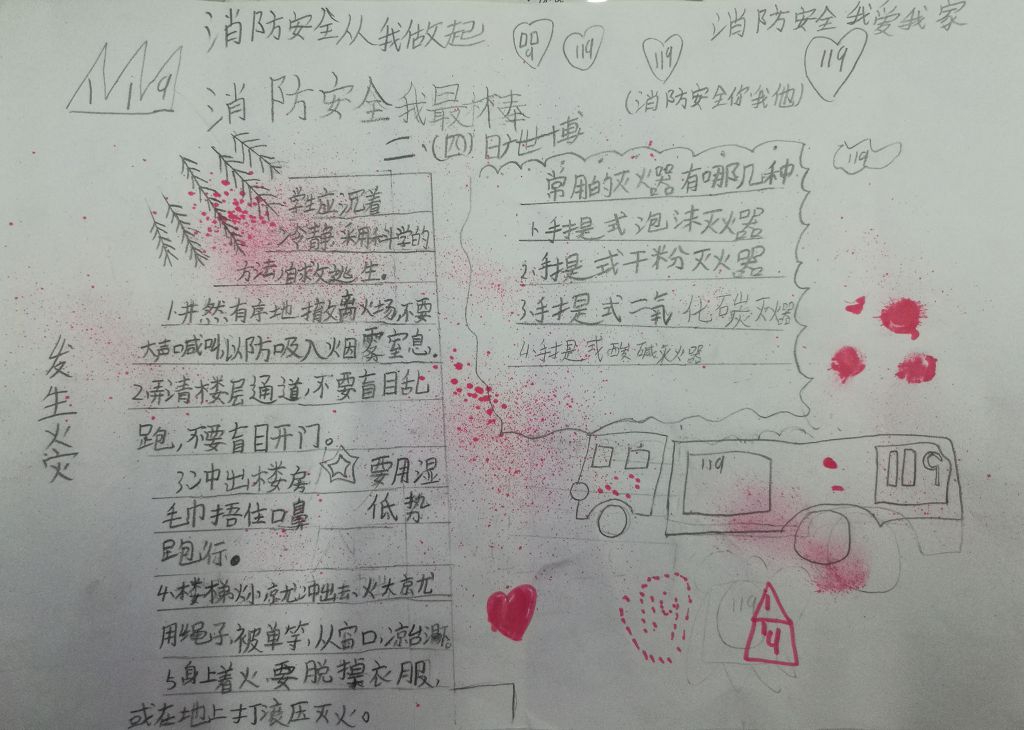 消防安全从我做起
119
119
119
消防安全我爱我家
119
119
消防安全我最棒
(消防安全你我他)
二、(四)
119
发生火灾
学生应沉着
冷静采用科学的
方法自救逃生。
1.井然有序地撤离火场,不要
大声喊叫以防吸入烟雾窒息。
2.弄清楼层通道,不要盲目乱
跑,不要盲目开门。
3.冲出楼房 要用湿
毛巾捂住口鼻 低势
跑行。
4.楼梯火小就冲出去、火大就
用绳子,被单等,从窗口,凉台
5.身上着火要脱掉衣服,
或在地上打滚压灭火。
常用的灭火器有哪几种
1.手提式泡沫灭火器
2.手提式干粉灭火器
3.手提式二氧化碳灭火器
4.手提式酸碱灭火器
119
119
119
119